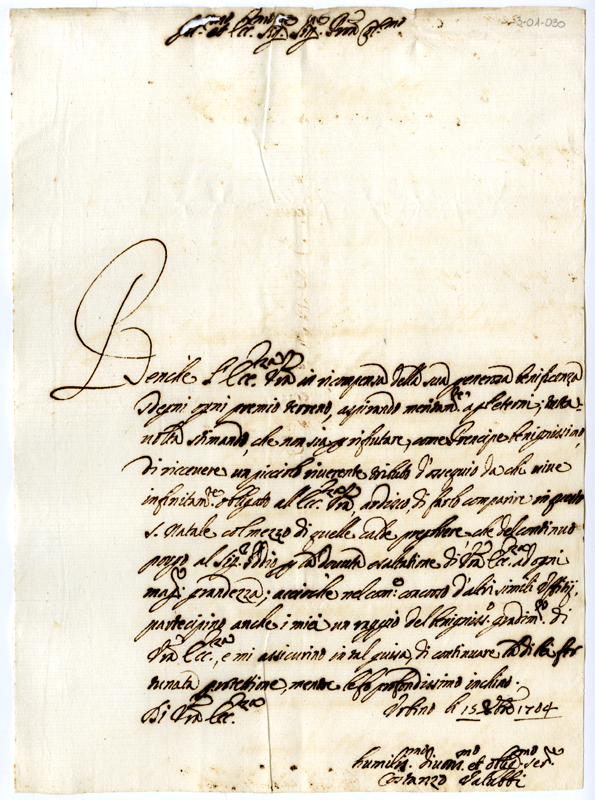 3-01-030
Ill.mo et Ecc. Sig. Sig. Pron Col.mo
Benche l'Ecc.za V'ra in ricompensa della sua generosa beneficenza
sdegni ogni premio terreno, aspirando agl'eterni; tutta
uolta stimando, che non sia p rifiutare, come Prencipe benignissimo,
di riceuere un picciolo riuerente tributo d'ossequio da chi uiue
infinitam.te obligato all'Ecc.za V'ra, ardisco di farlo comparire in questo
S. Natale col mezzo di quelle calde preghiere, che del continuo
porgo al Sig.r Iddio p la douuta esaltatione di V'ra Ecc.za ad ogni
mag.r grandezza; accioche nel com.o concorso d'altri simili Offitij,
partecipino anche i miei un raggio del benigniss.o gradim.to di
V'ra Ecc.za, e mi assicurino in tal guisa, di continuare la di lei for
tunata protettione, mentre le fo profondissimo inchino.
Di V'ra Ecc.za
Vrbino li 15 Xbre 1704
humiliss.mo diuotiss.mo et oblig.mo ser.e
Costanzo